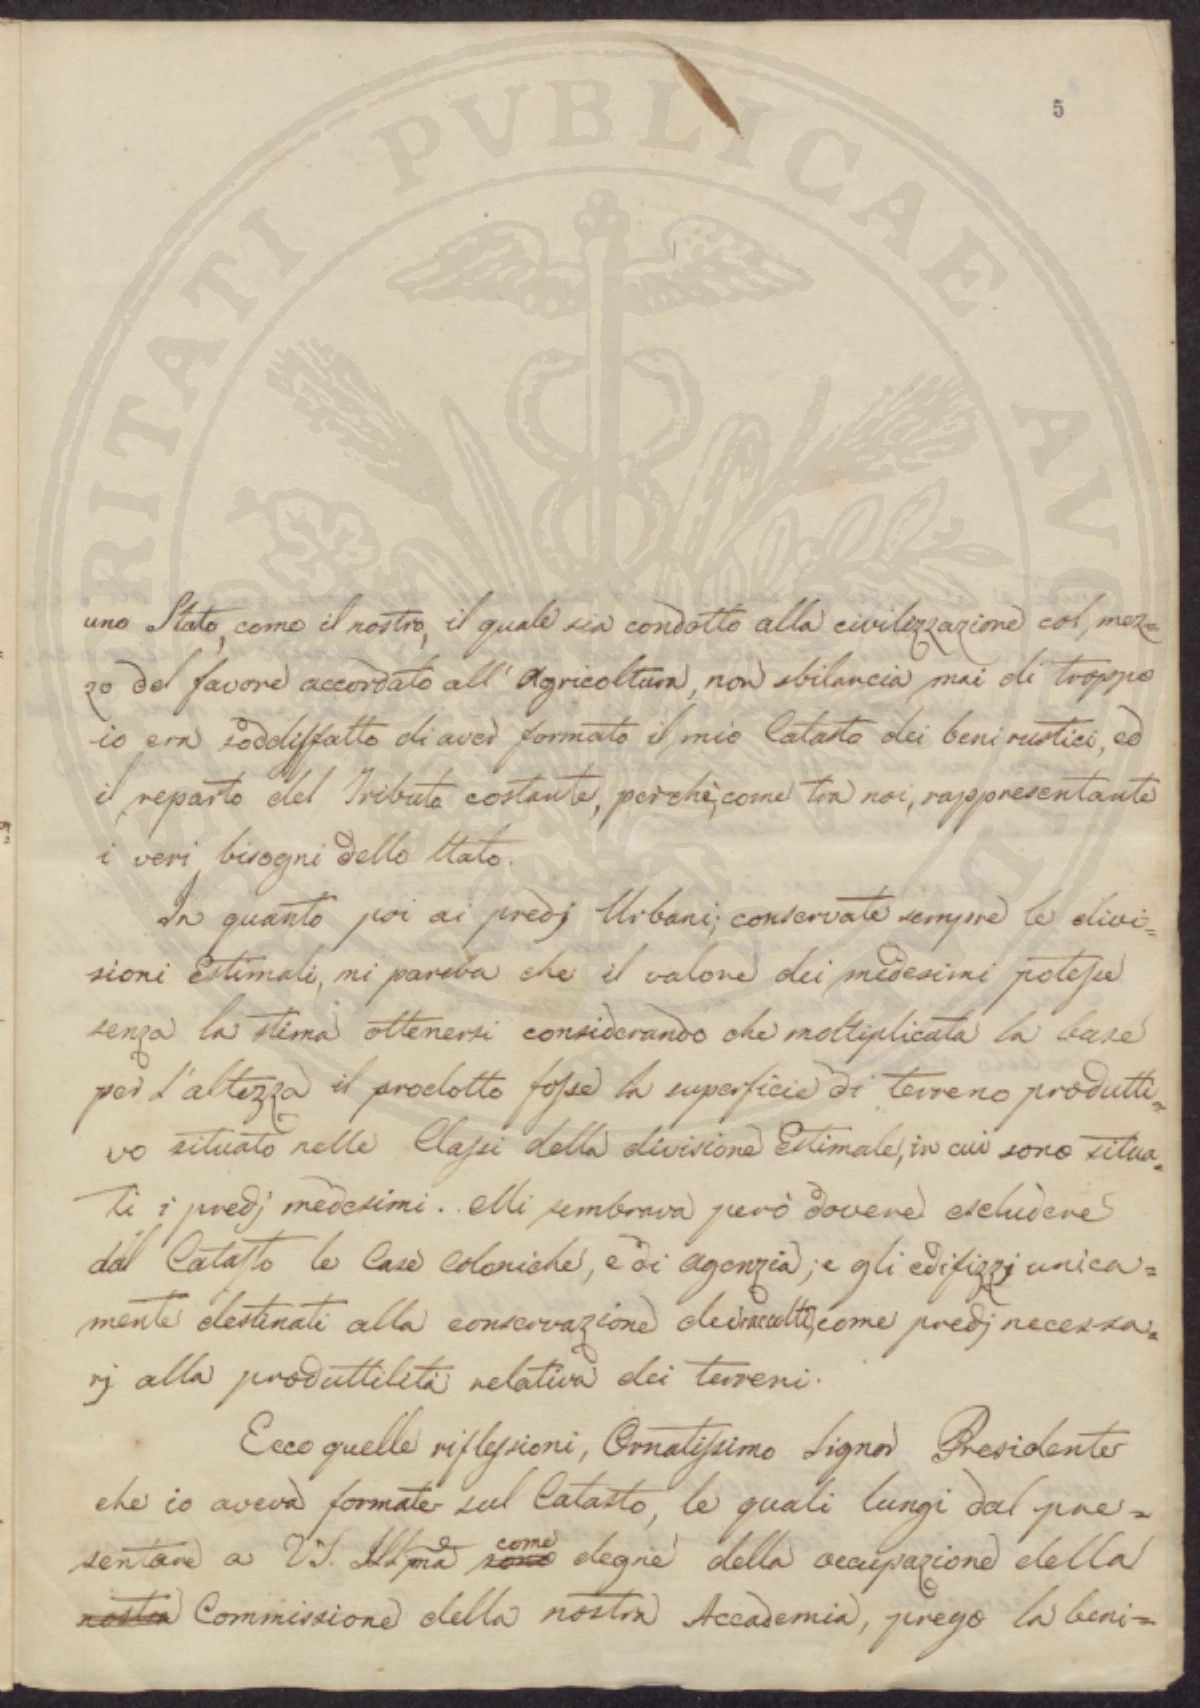 5
uno Stato, come il nostro, il quale sia condotto alla civilizzazione col mez=
zo del favore accordato all' Agricoltura, non sbilancia mai di troppo
io era soddisfatto di aver formato il mio Catasto dei beni rustici, ed
il reparto del Tributo costante, perchè, come tra noi, rappresentante
i veri bisogni dello Stato.
In quanto poi ai predj Urbani; conservate sempre le divi=
sioni Estimali, mi pareva che il valore dei medesimi potesse
senza la stima ottenersi considerando che moltiplicata la base
per l'altezza il prodotto fosse la superficie di terreno produtti=
vo situato nelle Classi della divisione Estimale, in cui sono situa=
ti i predj medesimi. Mi sembrava però dovere escludere
dal Catasto le Case Coloniche, e di Agenzia; e gli edifizzj unica=
mente destinati alla conservazione dei raccolti, come predj necessa=
rj alla produttilità relativa dei terreni.
Ecco quelle riflessioni, Ornatissimo Signor Presidente
che io aveva formate sul Catasto, le quali lungi dal pre=
sentare a VS. Illma come
sono degne della occupazione della
nostra Commissione della nostra Accademia, prego la beni=
PVBLICAE